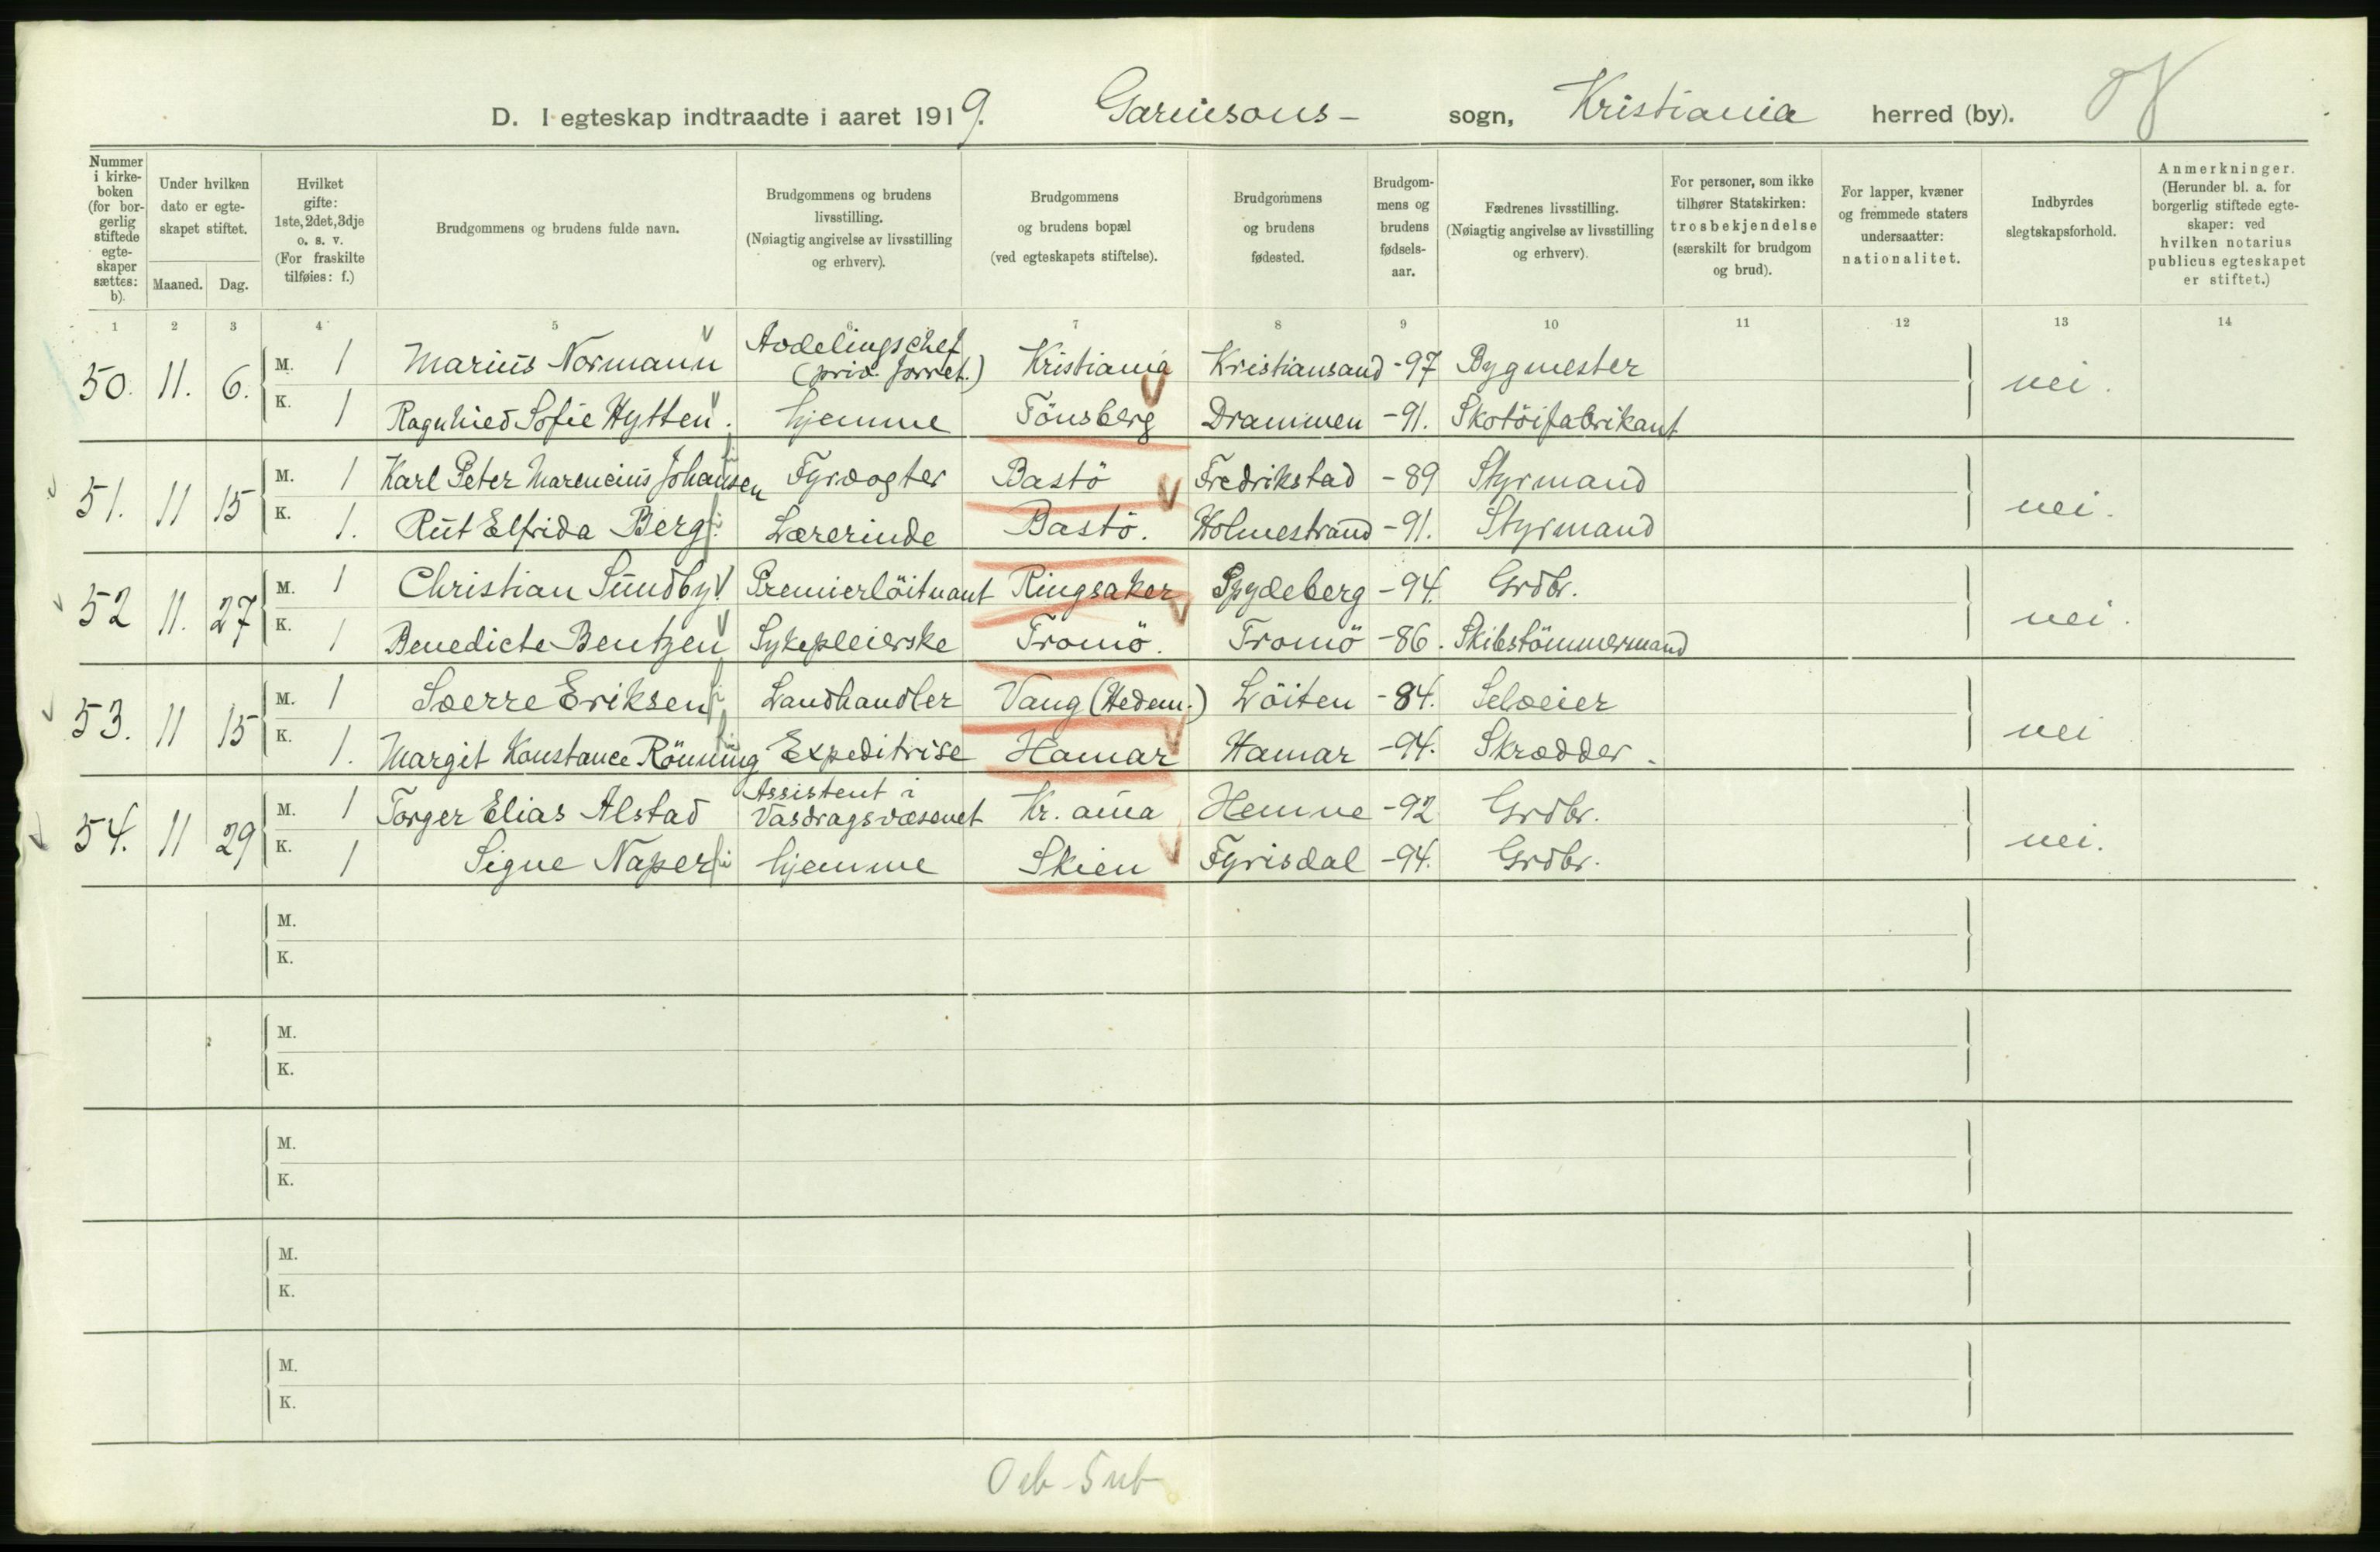 D. I egteskap indtraadte i aaret 1919. Garnisons- sogn, Kristiania herred (by).
Nummer i kirkeboken (for borgerlig stiftede egteskaper sættes: b).
Under hvilken dato er egteskapet stiftet.
Maaned. Dag.
Hvilket gifte: 1ste, 2det, 3dje o. s. v. (For fraskilte tilføies: f.)
Brudgommens og brudens fulde navn.
Brudgommens og brudens livsstilling. (Nøiagtig angivelse av livsstilling og erhverv).
Brudgommens og brudens bopæl (ved egteskapets stiftelse).
Brudgommens og brudens fødested.
Brudgommens og brudens fødselsaar.
Fædrenes livsstilling. (Nøiagtig angivelse av livsstilling og erhverv).
For personer, som ikke tilhører Statskirken: trosbekjendelse (særskilt for brudgom og brud).
For lapper, kvæner og fremmede staters undersaatter: nationalitet.
Indbyrdes slegtskapsforhold.
Anmerkninger. (Herunder bl. a. for borgerlig stiftede egteskaper: ved hvilken notarius publicus egteskapet er stiftet.)
1 2 3 4 5 6 7 8 9 10 11 12 13 14
50. 11. 6. M. 1 Marius Normann Avdelingschef (priv. forret.) Kristiania Kristiansand -97 Bygmester nei.
K. 1 Ragnhied Sofie Hytten. hjemme Tönsberg Drammen -91. Skotöifabrikant
51. 11 15 M. 1 Karl Peter Marencius Johansen Fyrvogter Bastö Fredrikstad -89 Styrmand nei.
K. 1. Rut Elfrida Berg Lærerinde Bastö. Holmestrand -91. Styrmand
52 11. 27 M. 1 Christian Sundby Premierlöitnant Ringsaker Spydeberg -94. Grdbr. nei.
K. 1 Benedicte Bentzen Sykepleierske Tromö. Tromö -86. Skibstömmermand
53. 11 15 M. 1 Sverre Eriksen Landhandler Vang (Hedem.) Löiten -84. Selveier nei
K. 1. Margit Konstance Rönning Expeditrise Hamar Hamar -94. Skrædder.
54. 11 29 M. 1 Torger Elias Alstad Assistent i Vasdragsvæsenet Kr. ania Hemne -92 Grdbr. nei.
K. 1 Signe Naper hjemme Skien Fyrisdal -94. Grdbr.
M.
K.
M.
K.
M.
K.
M.
K.
M.
K.